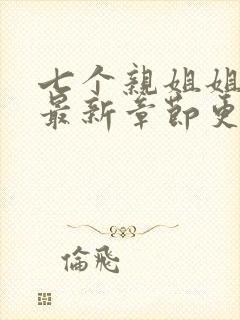 七个親姐姐
最新章節更
倫飛